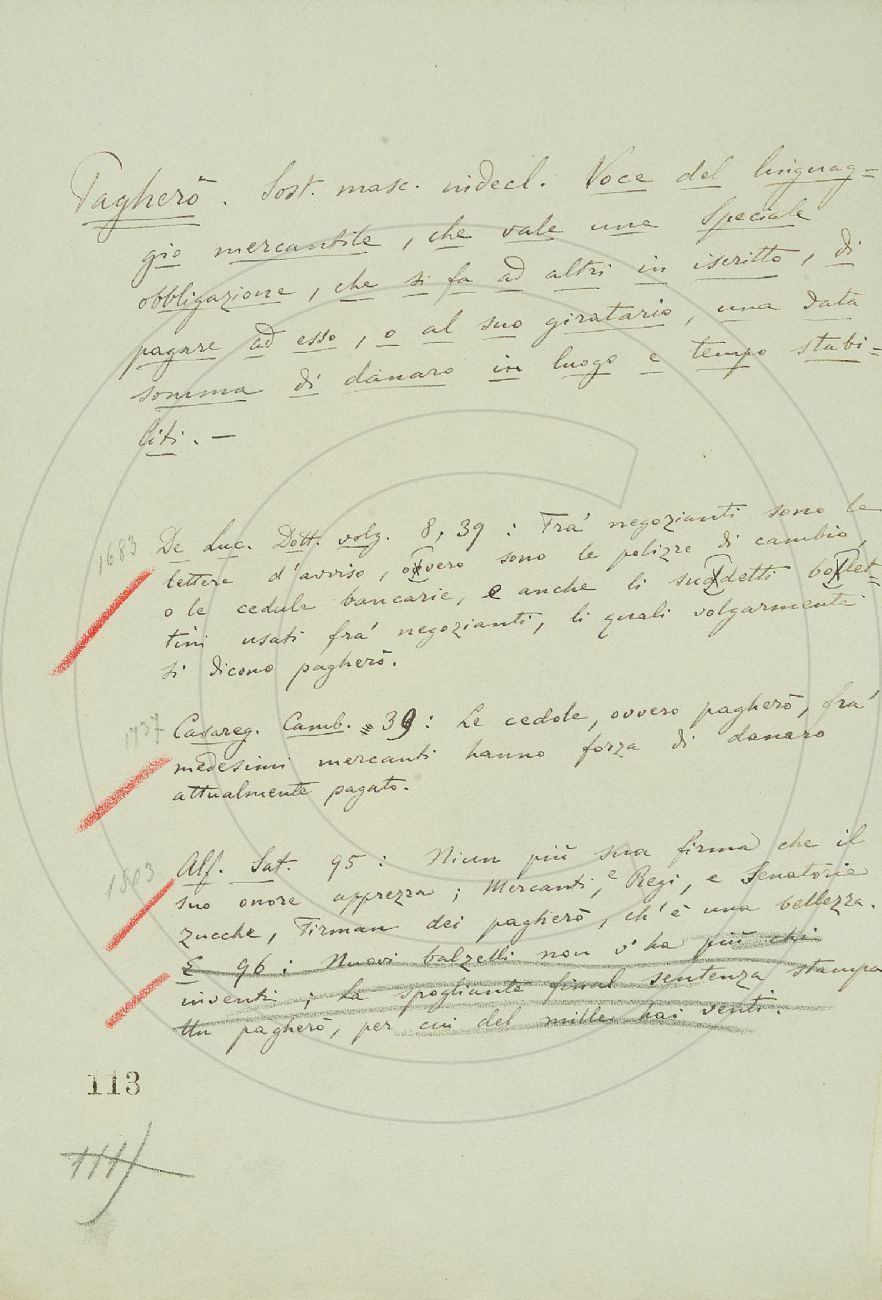 Pagherò. Sost. masc. indecl. Voce del linguag=
gio mercantile, che vale una speciale
obbligazione, che si fa ad altri in iscritto, di
pagare ad esso, o al suo giratario, una data
somma di danaro in luogo e tempo stabi=
liti. —
1683 De Luc. Dott. volg. 8, 39: Fra' negozianti sono le
lettere d'avviso, ovvero sono le polizze di cambio,
o le cedule bancarie, e anche li suddetti bollet=
tini usati fra' negozianti, li quali volgarmente
si dicono pagherò.
1737 Casareg. Camb. 39: Le cedole, ovvero pagherò, fra'
medesimi mercanti hanno forza di danaro
attualmente pagato.
1803 Alf. Sat. 95: Niun più sua firma che il
suo onore apprezza; Mercanti, e Regi, e Senatorie
zucche, Firman dei pagherò, ch'è una bellezza.
E 96: Nuovi balzelli non v'ha più chi
inventi; La spogliante final sentenza stampa
Un pagherò, per cui del mille hai venti.
113
111